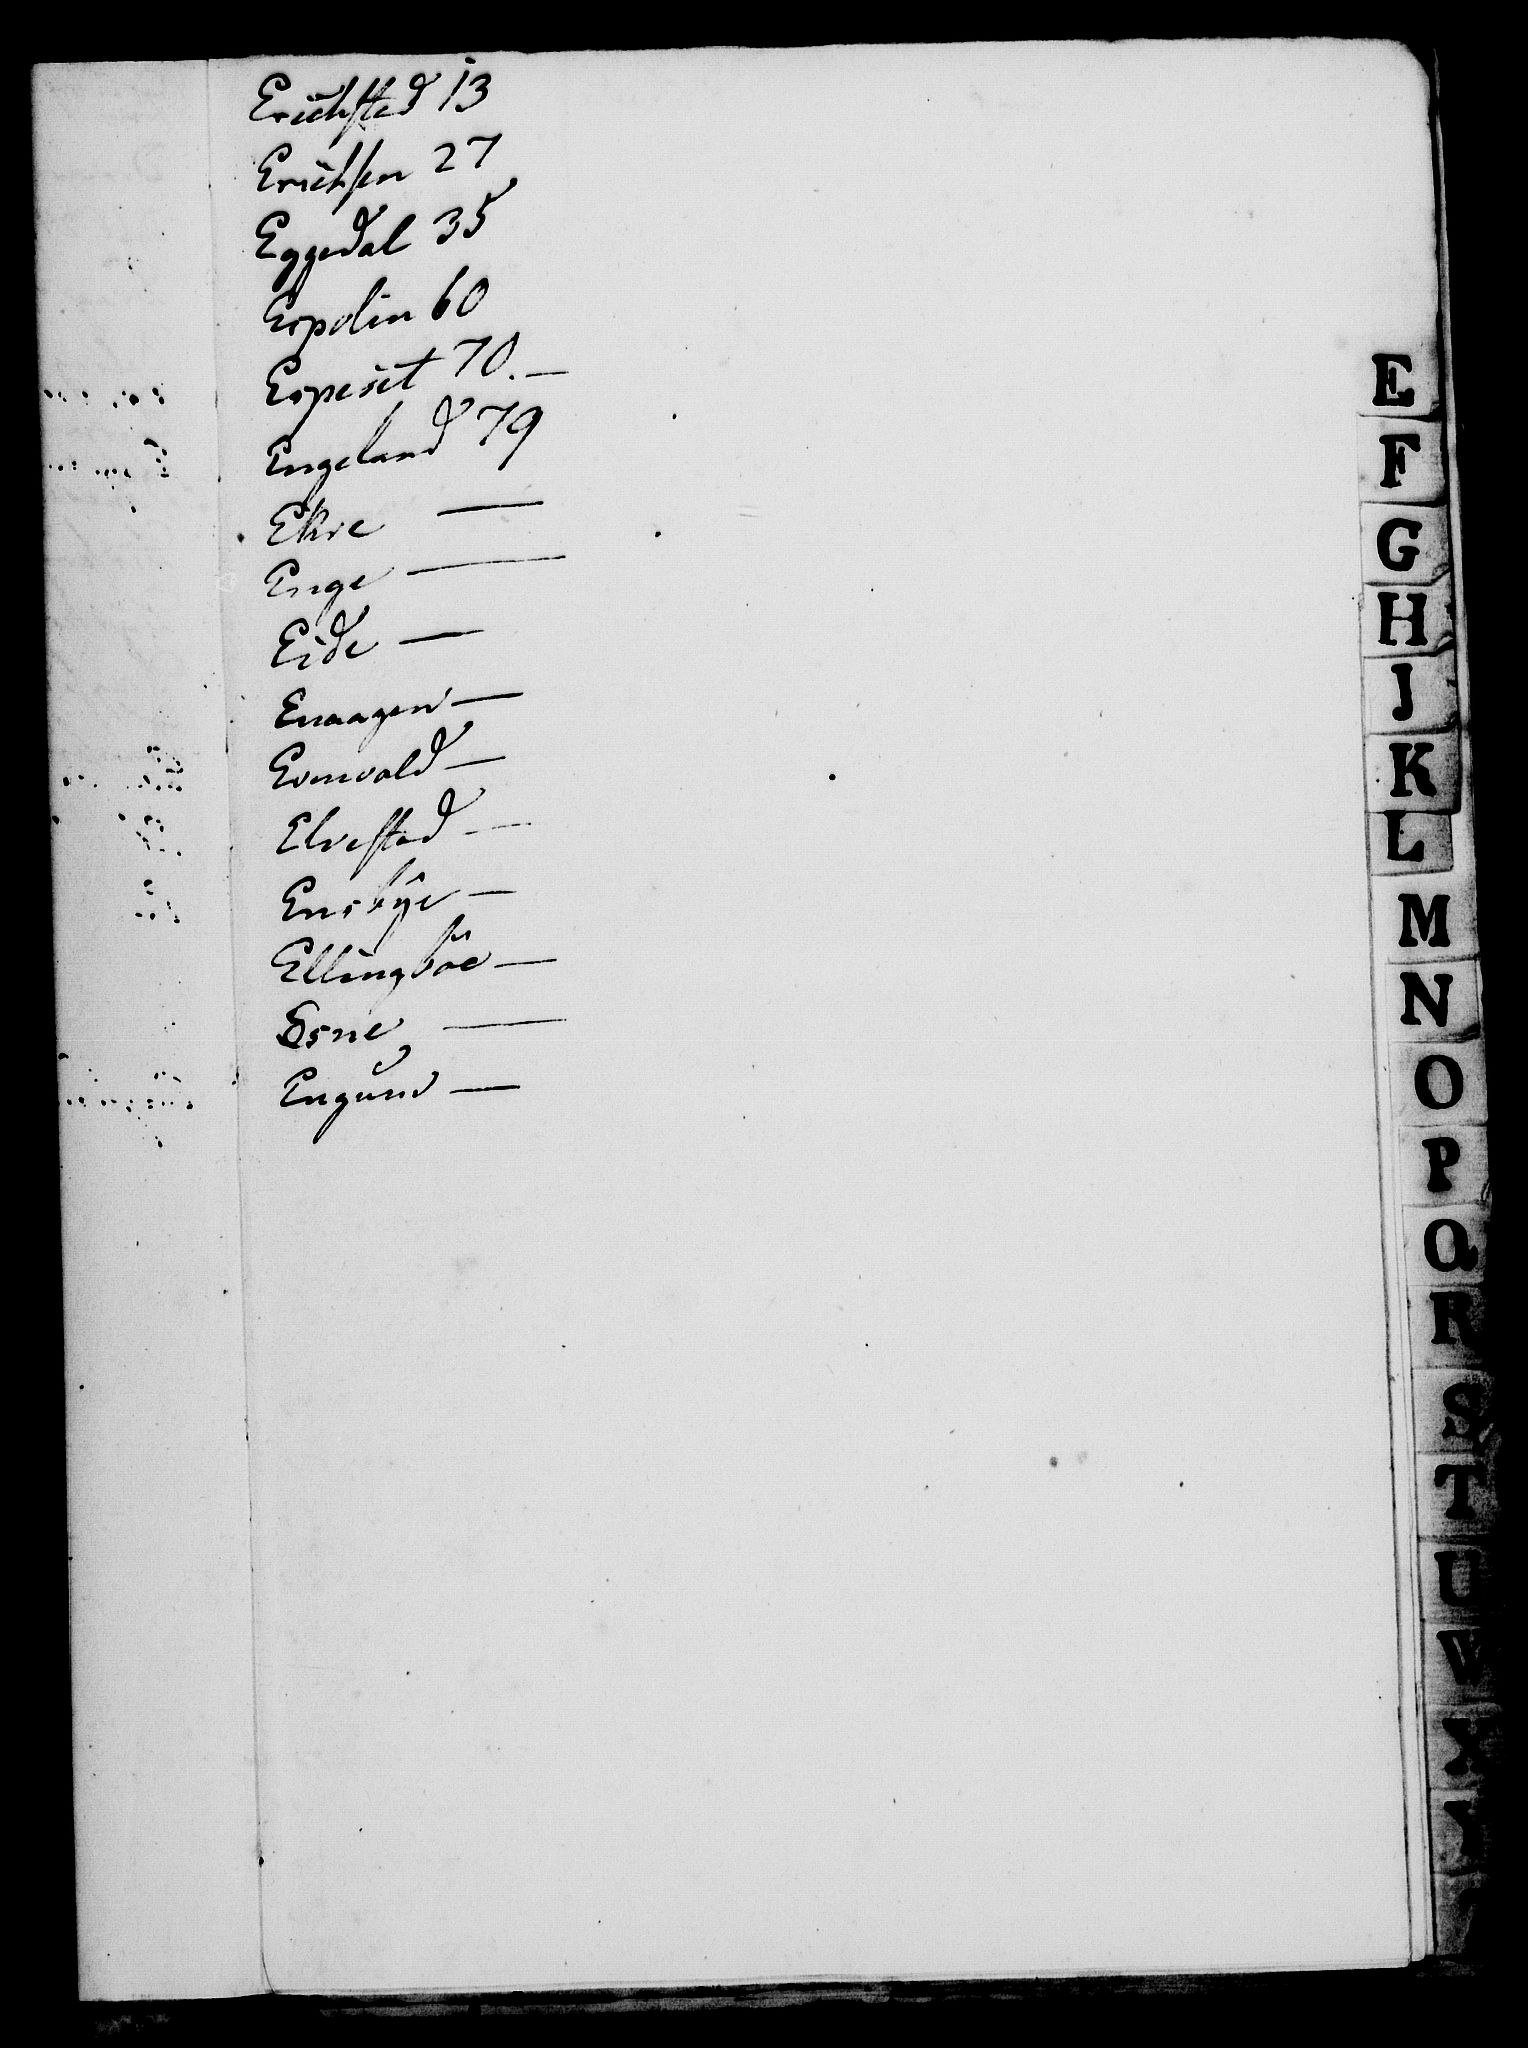 Erichsted 13
Erichsen 27
Eggedal 35
Espolin 60
Espeset 70. —
Engeland 79
Ekre —
Enge —
Eide —
Enaagen —
Evenvold —
Elvestad —
Ensbye —
Ellingböe —
Esne —
Engund —
E
F
G
H
J
K
L
M
N
O
P
Q
R
S
T
U
V
X
Y